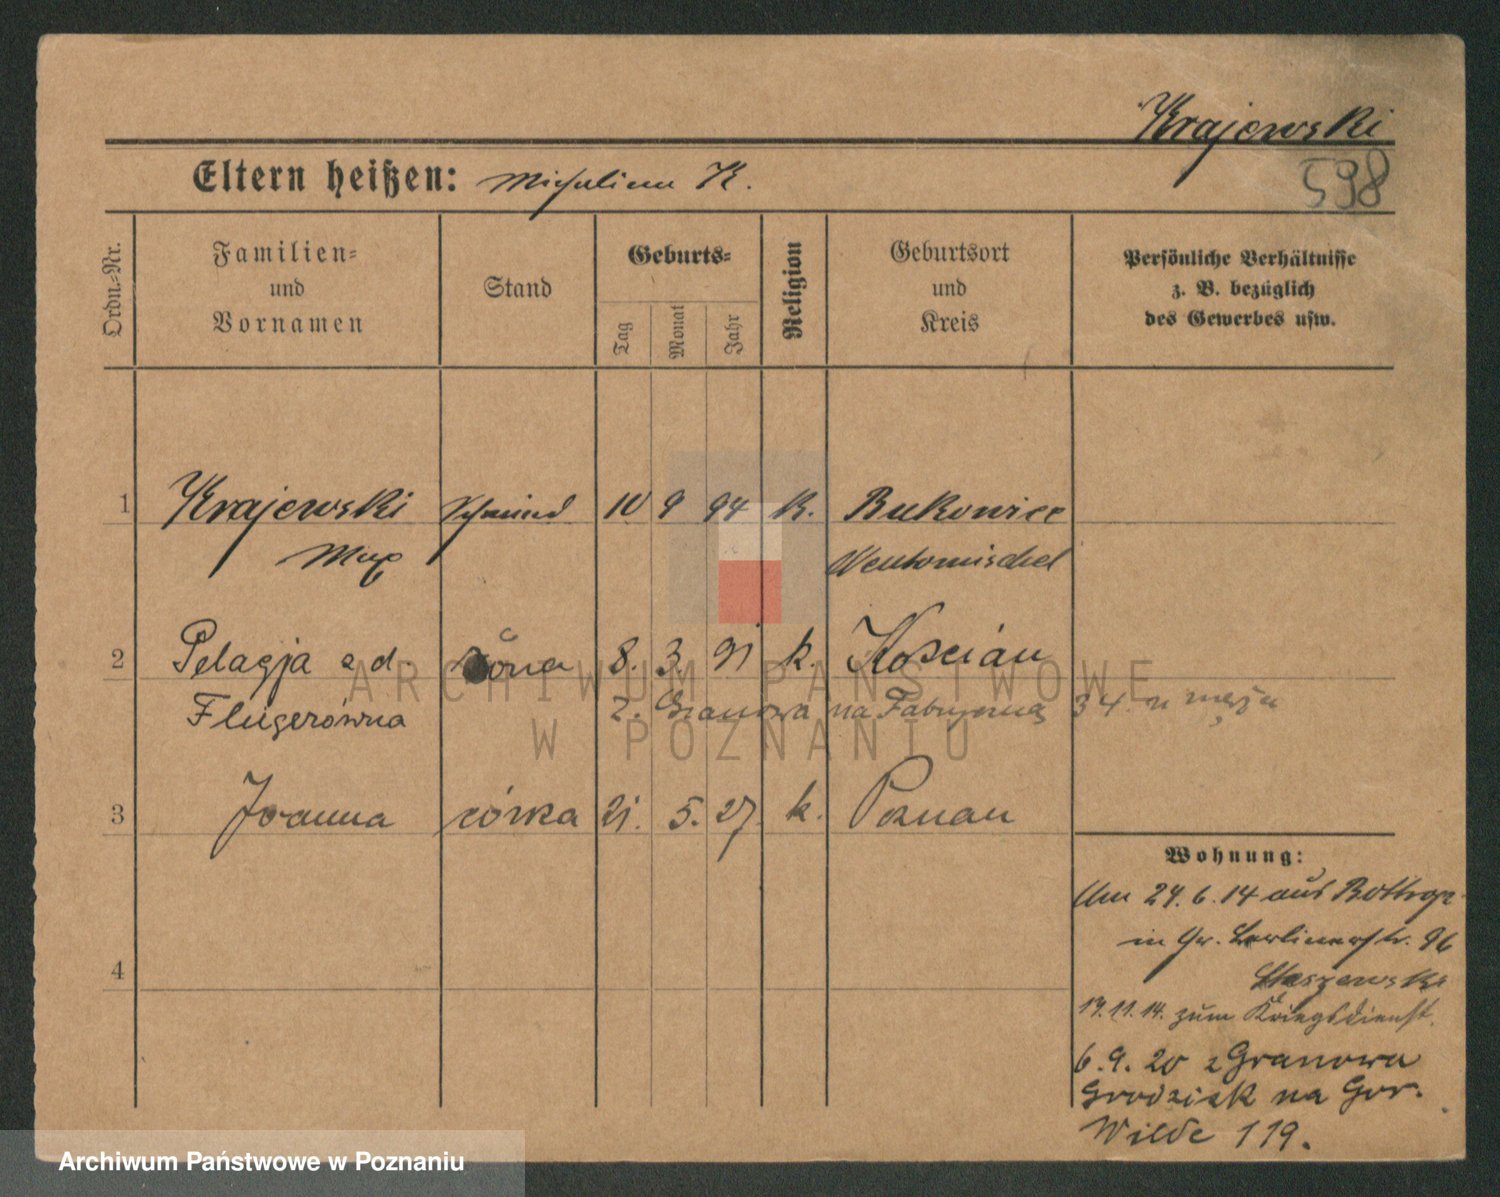 Krajewski
598
Eltern heißen: Michalina K.
Ordn.-Nr.
Familien- und Vornamen
Stand
Geburts-
Tag
Monat
Jahr
Religion
Geburtsort und Kreis
Persönliche Verhältnisse
z. B. bezüglich
des Gewerbes usw.
1 Krajewski Schmied 10 9 94 K. Bukowiec
Max Neutomischel
2 Pelagja z d. żona 8. 3. 91 k. Kościan
Flugerówna z. Granowa na Fabryczną 34 u męża
3 Joanna córka 21. 5. 27. k. Poznań
Wohnung:
Am 24.6.14 aus Bottrop
in Gr. Berlinerstr. 96
Staszewski
19.11.14. zum Kriegsdienst.
4
6.9.20 z Granowa
Grodzisk na Gór.
Wilde 119.
ARCHIWUM PAŃSTWOWE
W POZNANIU
Archiwum Państwowe w Poznaniu